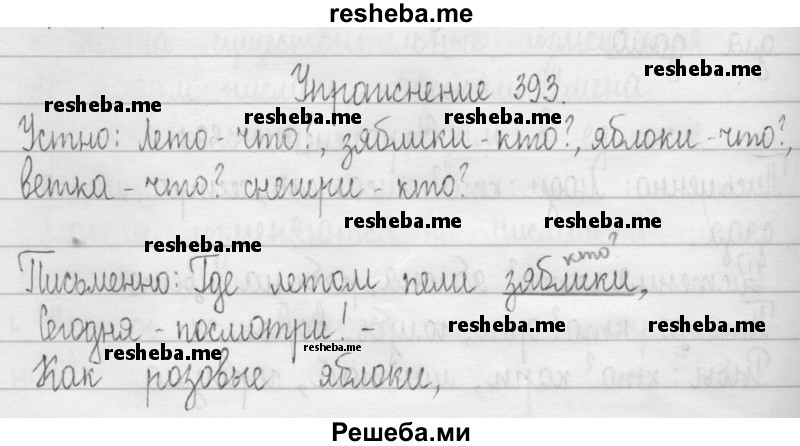 resheba.me
Упражнение 393.
resheba.me
resheba.me
resheba.me
resheba.me
Устно: Лето - что?, зяблики - кто?, яблоки - что?,
ветка - что? снегири - кто?
resheba.me
resheba.me
resheba.me
кто?
Письменно: Где летом пели зяблики,
Сегодня - посмотри! -
resheba.me
resheba.me
resheba.me
resheba.me
Как розовые яблоки,
Решеба.ми